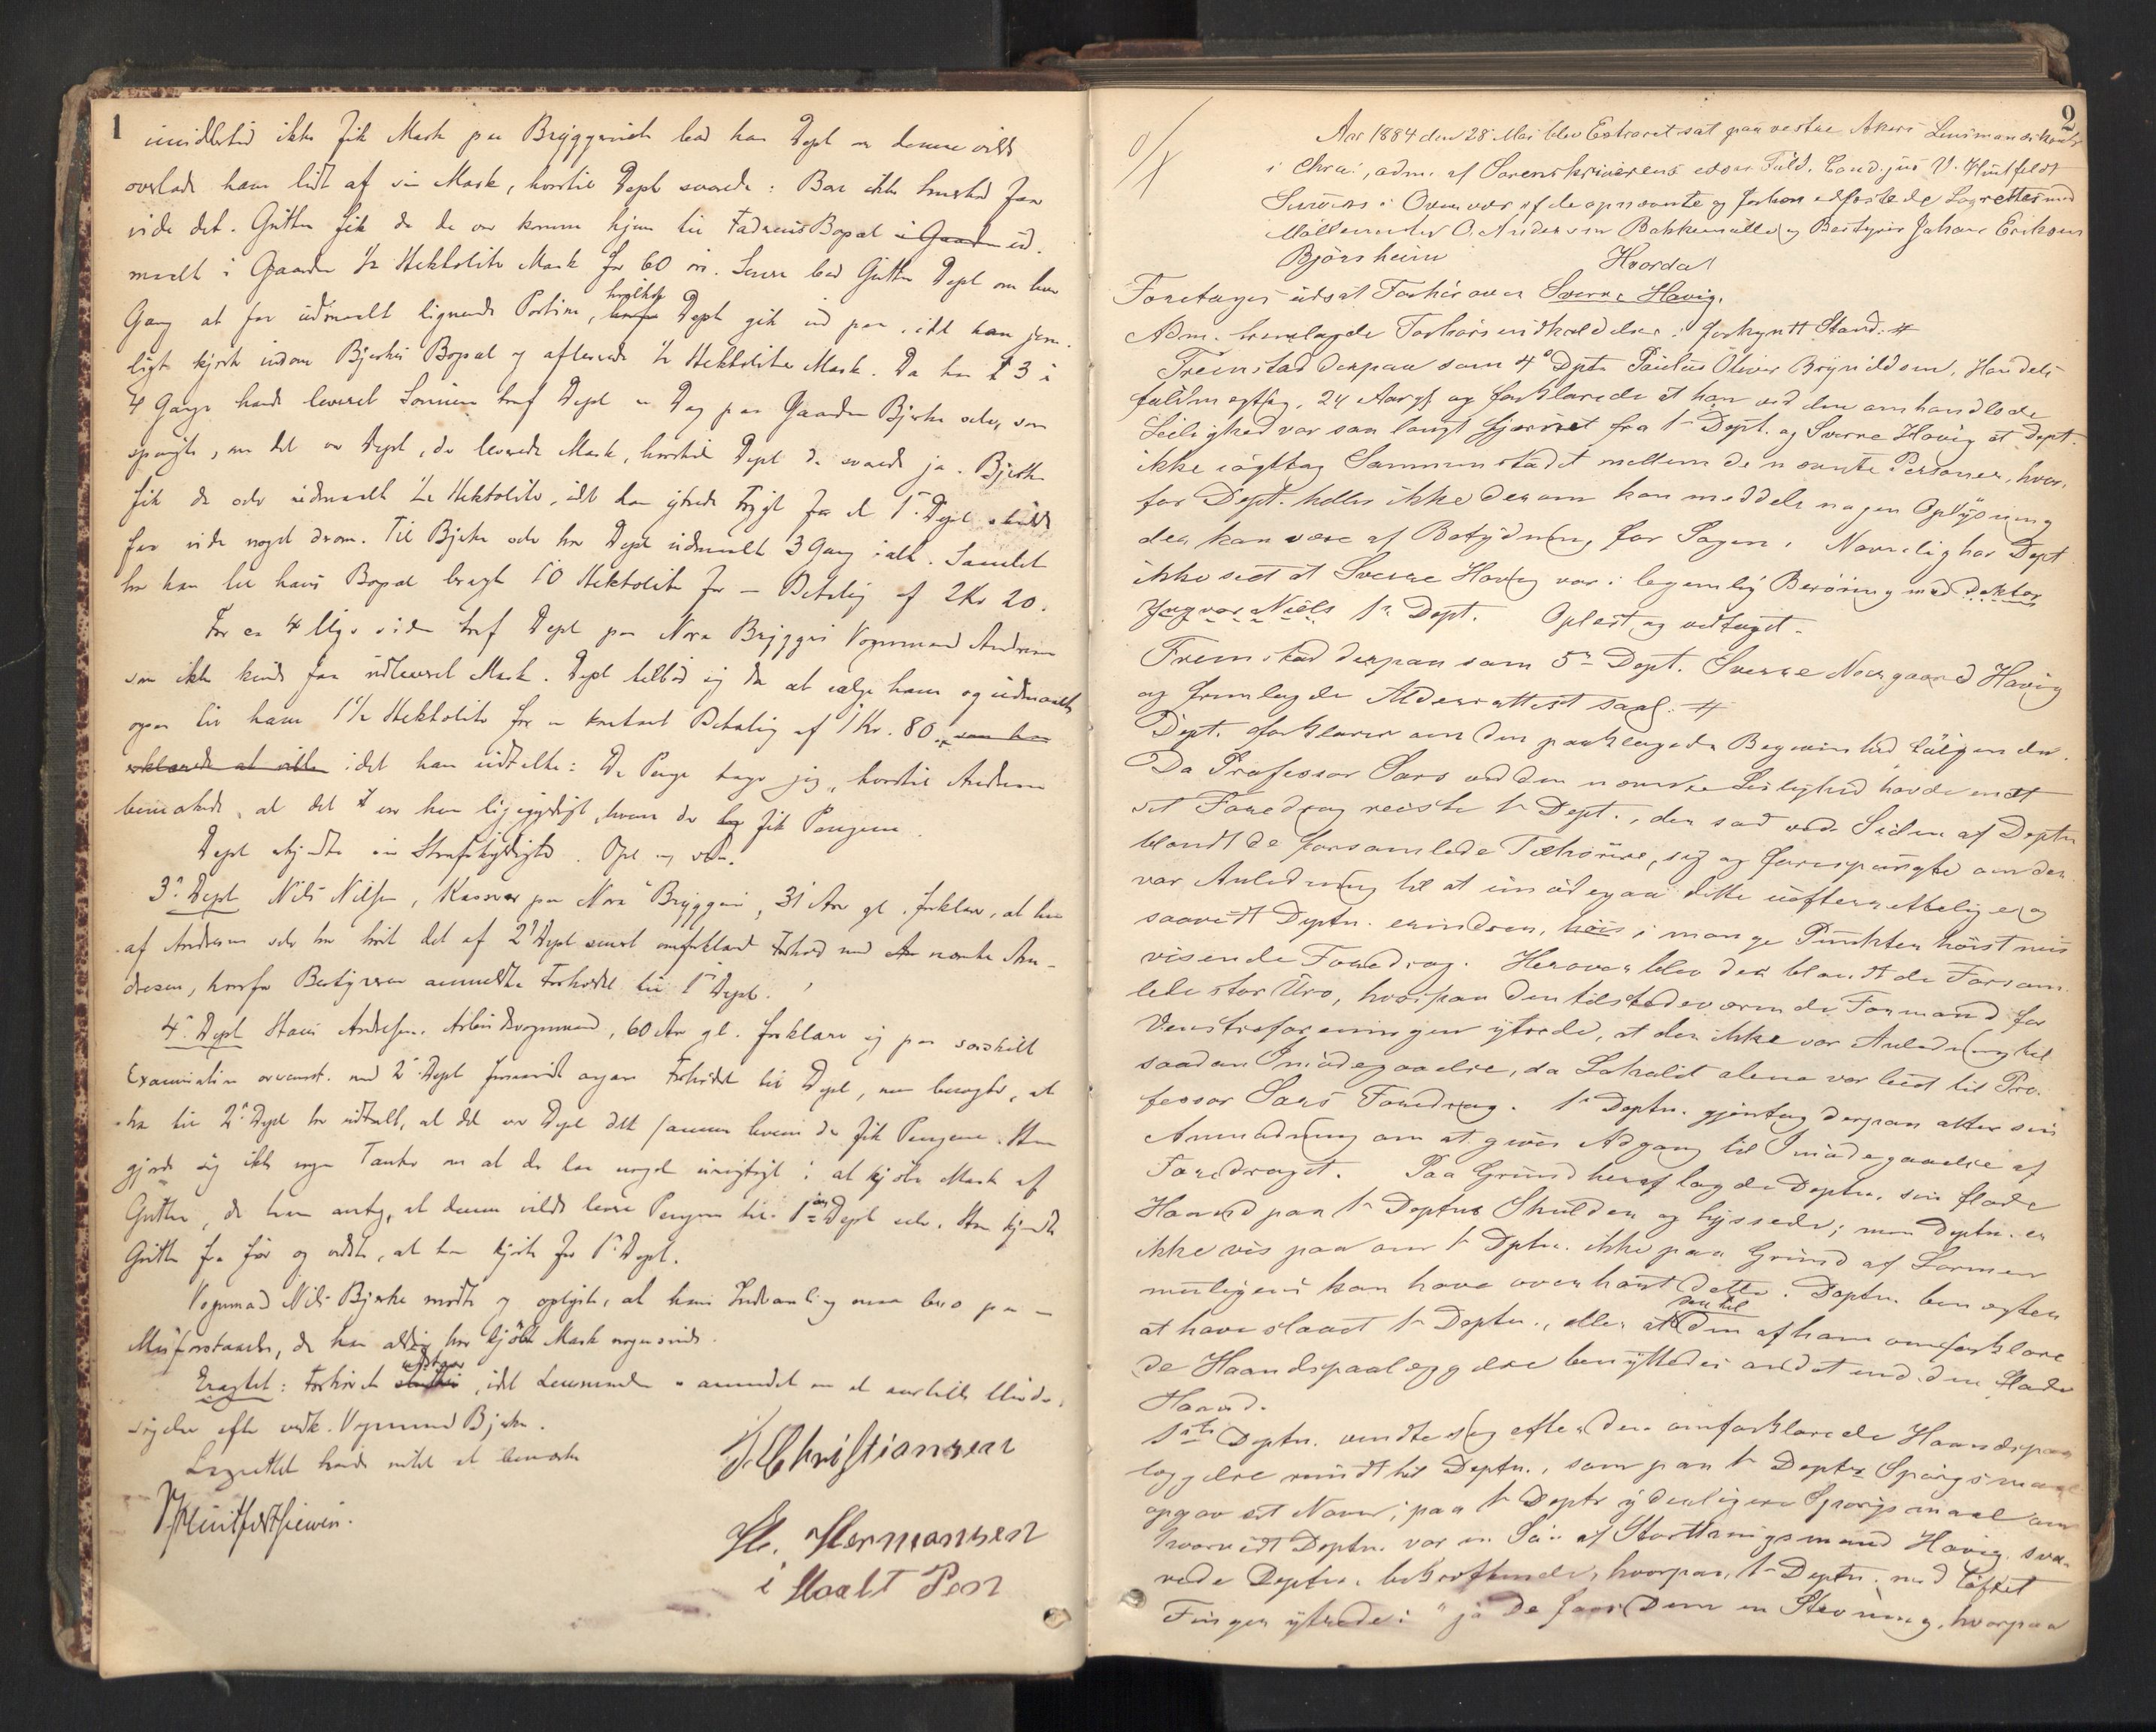 1
imidlertid ikke fik Mask paa Bryggeriet bad han Dept om denne vilde
overlade ham lidt af sin Mask, hvortil Dept svarede: Bare ikke Husbond faar
vide det. Gutten fik da de var komne hjem til Faderens Bopæl i Gaarden ud-
maalt i Gaarden ½ Hektoliter Mask for 60 øre. Senere bad Gutten Dept om hver
Gang at faa udmaalt lignende Portion, hvilket Dept gik ind paa, idet han jævn-
ligt kjørte indom Bjerkes Bopæl og afleverede ½ Hektoliter Mask. Da han 3 à
4 Gange havde leveret Sønnen traf Dept en Dag paa Gaarden Bjerke selv, som
spurgte, om det var Dept, der leverede Mask, hvortil Dept da svarede ja. Bjerke
fik da selv udmaalt ½ Hektoliter, idet han ytrede Frygt for at 1ste Dept skulde
faa vide noget derom. Til Bjerke selv har Dept udmaalt 3 Gang ialt. Samlet
har han til hans Bopæl bragt 10 Hektoliter for en Betaling af 2 Kr 20.
For ca 4 Uger siden traf Dept paa Nora Bryggeri Vognmand Andresen
som ikke kunde faa udleveret Mask. Dept tilbød sig da at sælge ham og udmaalte
ogsaa til ham 1½ Hektoliter for en kontant Betaling af 1 Kr. 80, som han
erklærede at ville idet han udtalte: De Penge tager jeg, hvortil Andresen
bemærkede, at det var ham ligegyldigt, hvem der fik Pengene.
Dept erkjendte sin Strafskyldighed. Opl. og vedt.
3die Dept Nils Nilsen, Kasserer paa Nora Bryggeri, 31 Aar gl. forklarer, at han
af Andresen selv har hørt det af 2den Dept senest omforklarede Forhold med nævnte An-
dresen, hvorfor Bestyreren anmeldte Forholdet til 1ste Dept.
4de Dept Hans Andresen. Arbeidsvognmand, 60 Aar gl. forklarer sig paa særskilt
Examination overensst. med 2den Dept forsaavidt angaar Forholdet til Dept, men benægter, at
han til 2den Dept har udtalt, at det var Dept det samme hvem der fik Pengene. Han
gjorde sig ikke nogen Tanker om at der laa noget urigtigt i at kjøbe Mask af
Gutten, da han antog, at denne vilde levere Pengene til 1ste Dept selv. Han kjendte
Gutten fra før og vidste, at han kjørte for 1ste Dept.
Vognmand Nils Bjerke mødte og oplyste, at hans Indkaldelse maa bero paa en
Misforstaaelse, da han aldrig har kjøbt Mask nogensinde.
Eragtet: Forhøret udstaar, idet Lensmanden er anmodet om at anstille Under-
søgelse efter vedk. Vognmand Bjerke.
Lagrettet havde intet at bemærke
V. Huitfeldt Siewers. J. Christiansen
H. Hermansen
i Haalt Pen
2
Aar 1884 den 28 Mai blev Extraret sat paa vestre Akers Lensmandskontor
i Chra:, adm. af Sorenskriverens edsv. Fuldm. Cand. jur V. Huitfeldt
Siewers i Overvær af de opnævnte og forhen edfæstede Lagrettesmænd
Møllemester O. Andersen Bakkemølle og Bestyrer Johan Erikson
Bjørsheim Hvorda!
Foretoges udsat Forhør over Sverre Høvig.
Adm. fremlagde Forhørsindkaldelse i forkyndt Stand. #
Fremstod derpaa som 4de Dpt. Paulus Oliver Brynildsen, Handels-
fuldmægtig, 24 Aar gl og forklarede at han ved den omhandlede
Leilighed var saa langt fjernet fra 1ste Dept. og Sverre Høvig at Dept.
ikke iagttog Sammenstødet mellem de nævnte Personer, hvor-
for Dept. heller ikke derom kan meddele nogen Oplysning
der kan være af Betydning for Sagen. Navnlig har Dept.
ikke seet at Sverre Høvig var i legemlig Berøring med Doktor
Yngvar Niels 1ste Dept. Oplæst og vedtaget.
Fremstod derpaa som 5te Dept. Sverre Norgaard Høvig
og fremlagde Aldersattest saal. #
Dept. forklarer om den paaklagede Begivenhed følgende.
Da Professor Sars ved den nævnte Leilighed havde endt
sit Foredrag reiste 1ste Dept., der sad ved Siden af Deptn
blandt de forsamlede Tilhørere, sig og forespurgte om der
var Anledning til at imødegaa dette uefterrettelige og
saavidt Deptn. erindrer, høis i mange Punkter høist mis-
visende Foredrag. Herover blev der blandt de Forsam-
lede stor Uro, hvorpaa den tilstedeværende Formand for
Venstreforeningen ytrede, at der ikke var Anledning til
saadan Imødegaaelse, da Lokalet alene var leiet til Pro-
fessor Sars Foredrag. 1ste Deptn. gjentog derpaa atter sin
Anmodning om at gives Adgang til Imødegaaelse af
Foredraget. Paa Grund heraf lagde Deptn. sin flade
Haand paa 1ste Deptns Skulder og hyssede; men Deptn. er
ikke vis paa om 1ste Dptn. ikke paa Grund af Larmen
muligens kan have overhørt dette. Deptn. benægter
at have slaaet 1ste Deptn., eller at den af ham omforklare-
de Haandspaalæggelse benyttedes andet end den flade
Haand.
1ste Deptn. vendte sig efter den omforklarede Haandspaa-
læggelse rundt til Deptn., som paa 1ste Deptns Spørgsmaal
opgav sit Navn; paa 1ste Deptns yderligere Spørgsmaal om
hvorvidt Deptn. var en Søn af Storthingsmand Høvig, sva-
rede Deptn. bekræftende, hvorpaa 1ste Deptn. med løftet
Finger ytrede: "ja De faar Dem en Stevning, hvorpaa